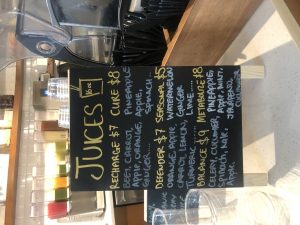 JUICES
RECHARGE $7
BEET, CARROT,
APPLE, ORANGE,
GINGER...
CURE $8
PINEAPPLE
APPLE,
SPINACH...
DEFENDER $7
ORANGE, APPLE,
CARROT, LEMON
TURMERIC
SEASONAL $5
WATERMELON
GINGER
LIME...
BALANCE $9
CELERY, CUCUMBER,
SPINACH, KALE,
APPLE
METABOLIZE $8
PINEAPPLE
APPLE, MINT,
JALAPEÑO,